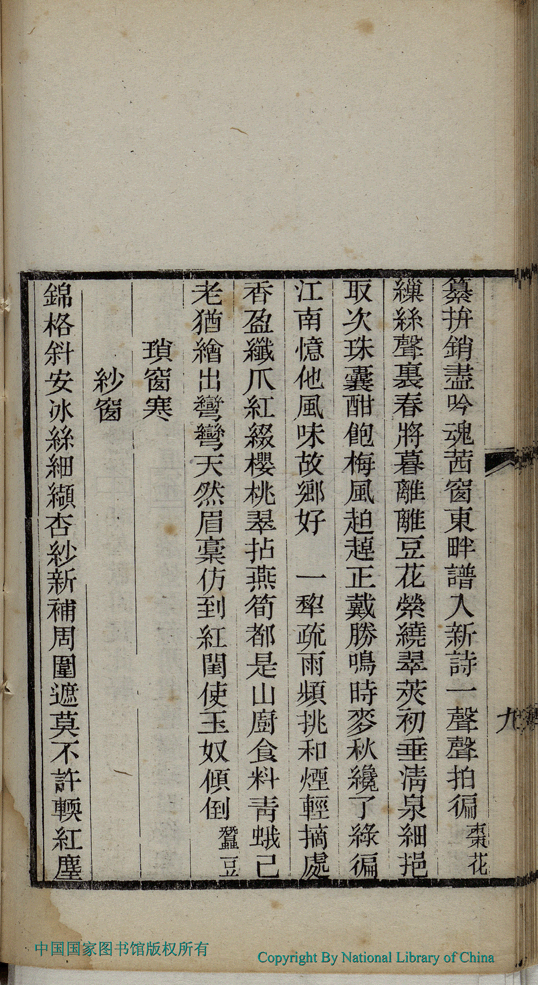 纂拚銷盡吟魂茜窗東畔譜入新詩一聲聲拍徧棗花
繅絲聲裏春將暮離離豆花縈繞翠莢初垂淸泉細挹
取次珠囊酣飽梅風趋趠正戴勝鳴時麥秋纔了綠徧
江南憶他風味故鄉好 一犂疏雨頻挑和煙輕摘處
香盈纖爪紅綴櫻桃翠拈燕筍都是山廚食料靑蛾已
老猶繪出彎彎天然眉稾仿到紅閨使玉奴傾倒蠶豆
瑣窗寒
紗窗
錦格斜安冰絲細纈杏紗新補周圍遮莫不許輭紅塵
九
中国国家图书馆版权所有
Copyright By National Library of China